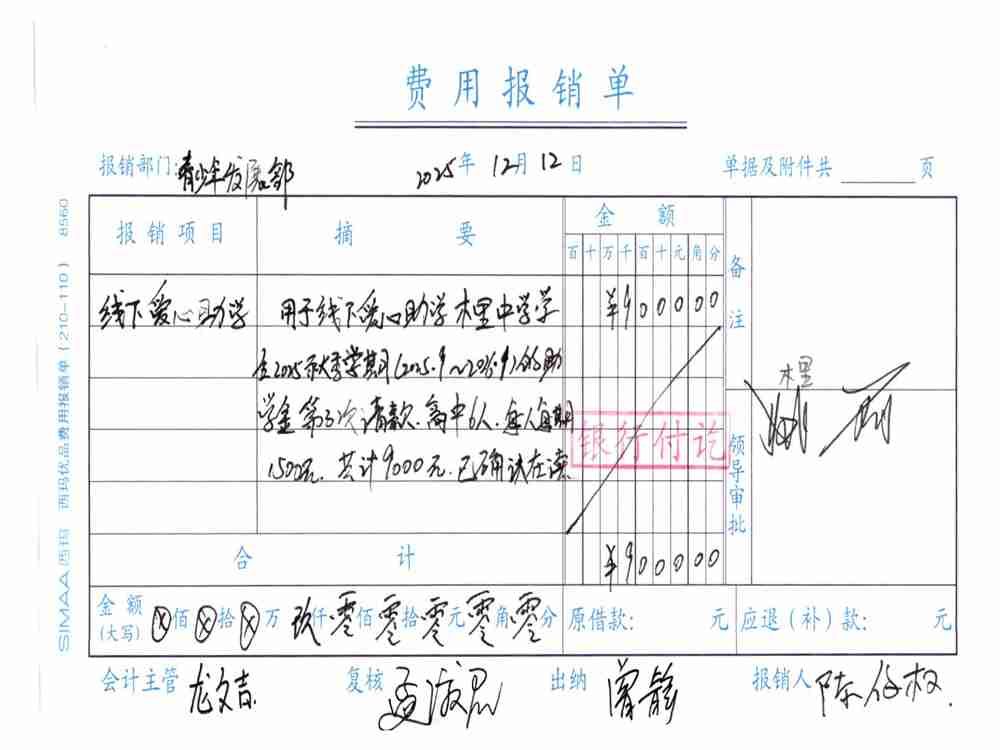 费用报销单
报销部门：青少年发展部 2025年 12月 12日 单据及附件共 页
报销项目 摘要 金额 备注
百十万千百十元角分
线下爱心助学 用于线下爱心助学木里中学学 ¥900000
生2025秋季学期(2025.9~2026.9)的助
学金第3次请款.高中6人.每人每期
1500元.共计9000元.已确认在读
银行付讫
领导审批
木里
合计 ¥900000
金额(大写) ⊗佰⊗拾⊗万 玖仟零佰零拾零元零角零分 原借款： 元 应退（补）款： 元
会计主管 龙文吉 复核 孟 出纳 曾静 报销人 陈
SIMAA西玛 西玛优品费用报销单（210—110） 8560